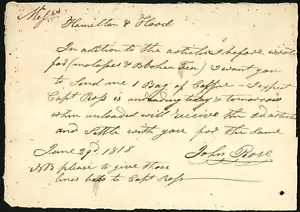 Messrs
Hamilton & Hood
In adition to the articles I before wrote
for (molases & Bohea Tea) I want you
to Send me 1 Bag of Coffee - I expect
Capt Ross is unloading today & tomorrow
when unloaded will receive the articles
and Settle with you for the Same
June 29d 1818 John Rose
NB please to give those
lines to Capt Ross